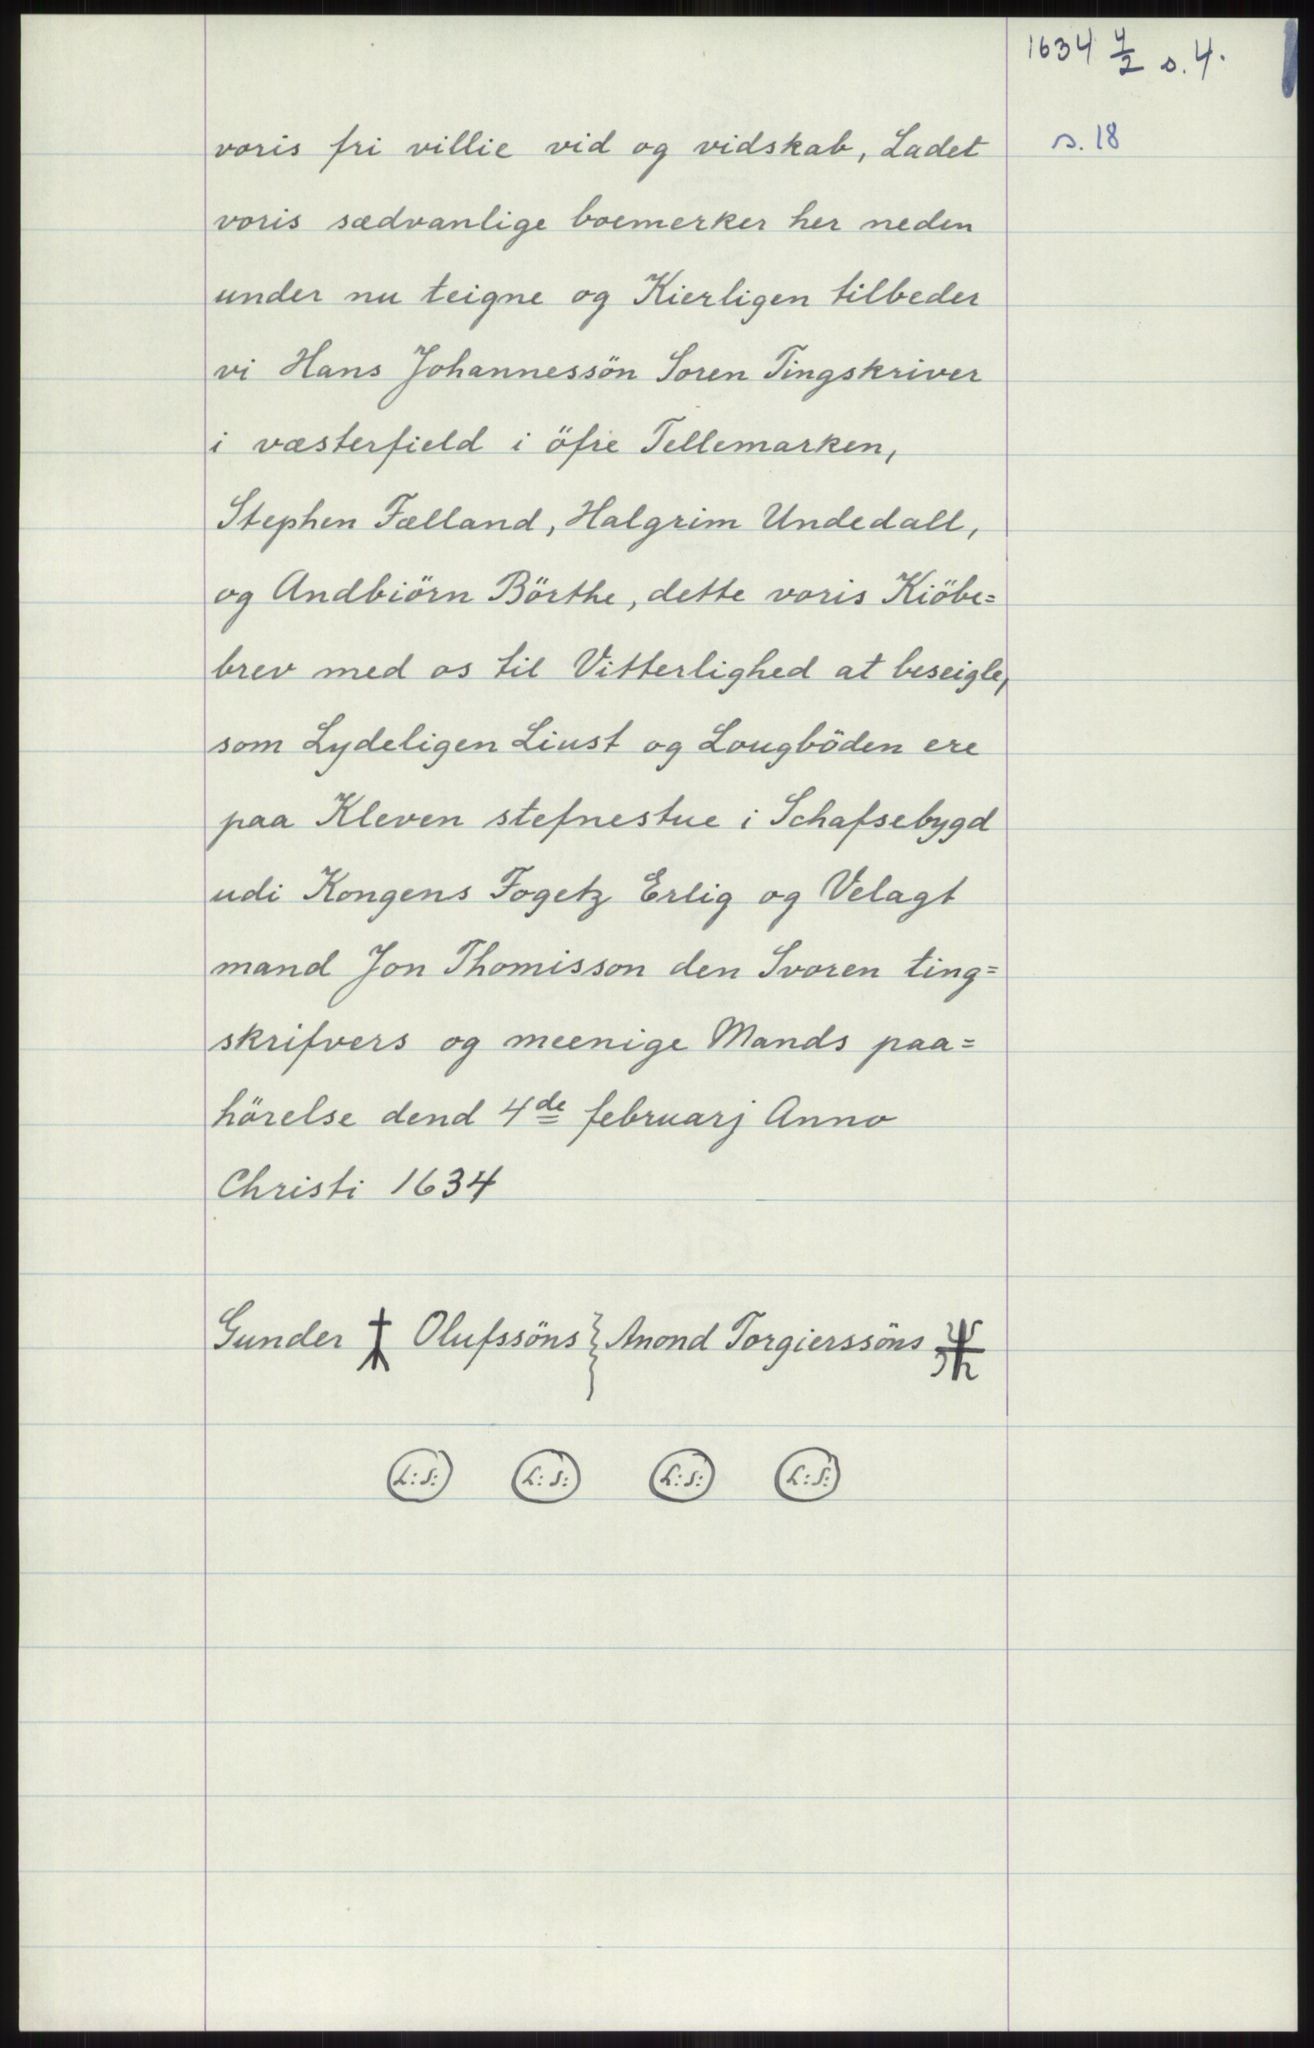 1634 4/2 s. 4.
s. 18
voris fri villie vid og vidskab, Ladet
voris sædvanlige boemerker her neden
under nu teigne og Kierligen tilbeder
vi Hans Johannessön Soren Tingskriver
i væsterfield i öfre Tellemarken,
Stephen Fælland, Halgrim Undedall,
og Andbiörn Börthe, dette voris Kiöbe=
brev med os til Vitterlighed at beseigle,
som Lydeligen Liust og Lougböden ere
paa Kleven stefnestue i Schafsebygd
udi Kongens Fogetz Erlig og Velagt
mand Jon Thomisson den Svoren ting=
skrifvers og meenige Mands paa=
hörelse dend 4de februarj Anno
Christi 1634
Gunder Olufssöns } Anond Torgierssöns
L:S: L:S: L:S: L:S: